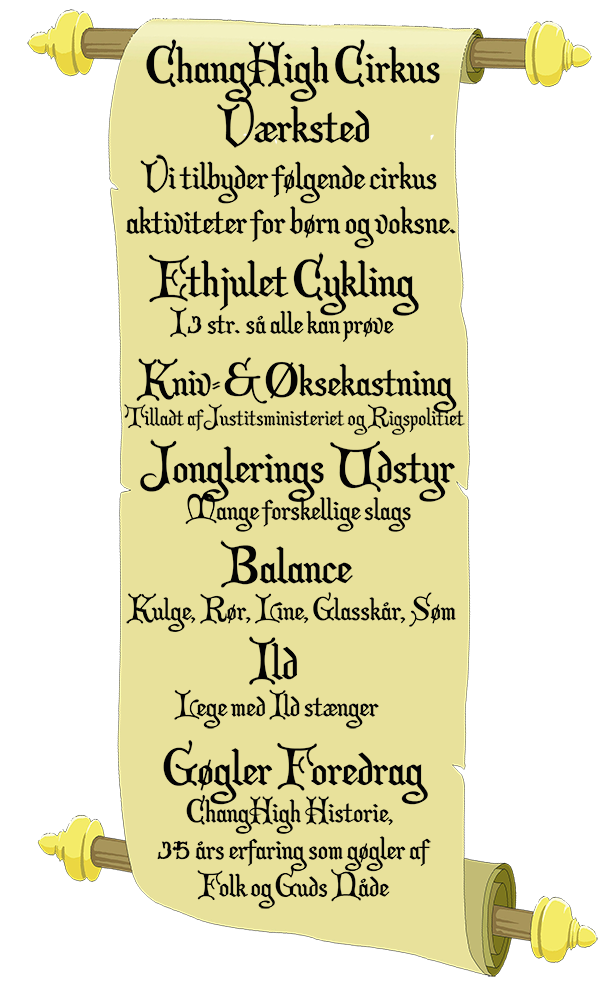 ChangHigh Cirkus
Værksted
Vi tilbyder følgende cirkus
aktiviteter for børn og voksne.
Ethjulet Cykling
I 3 str. så alle kan prøve
Kniv- & Øksekastning
Tilladt af Justitsministeriet og Rigspolitiet
Jonglerings Udstyr
Mange forskellige slags
Balance
Kulge, Rør, Line, Glasskår, Søm
Ild
Lege med Ild stænger
Gøgler Foredrag
ChangHigh Historie,
35 års erfaring som gøgler af
Folk og Guds Nåde